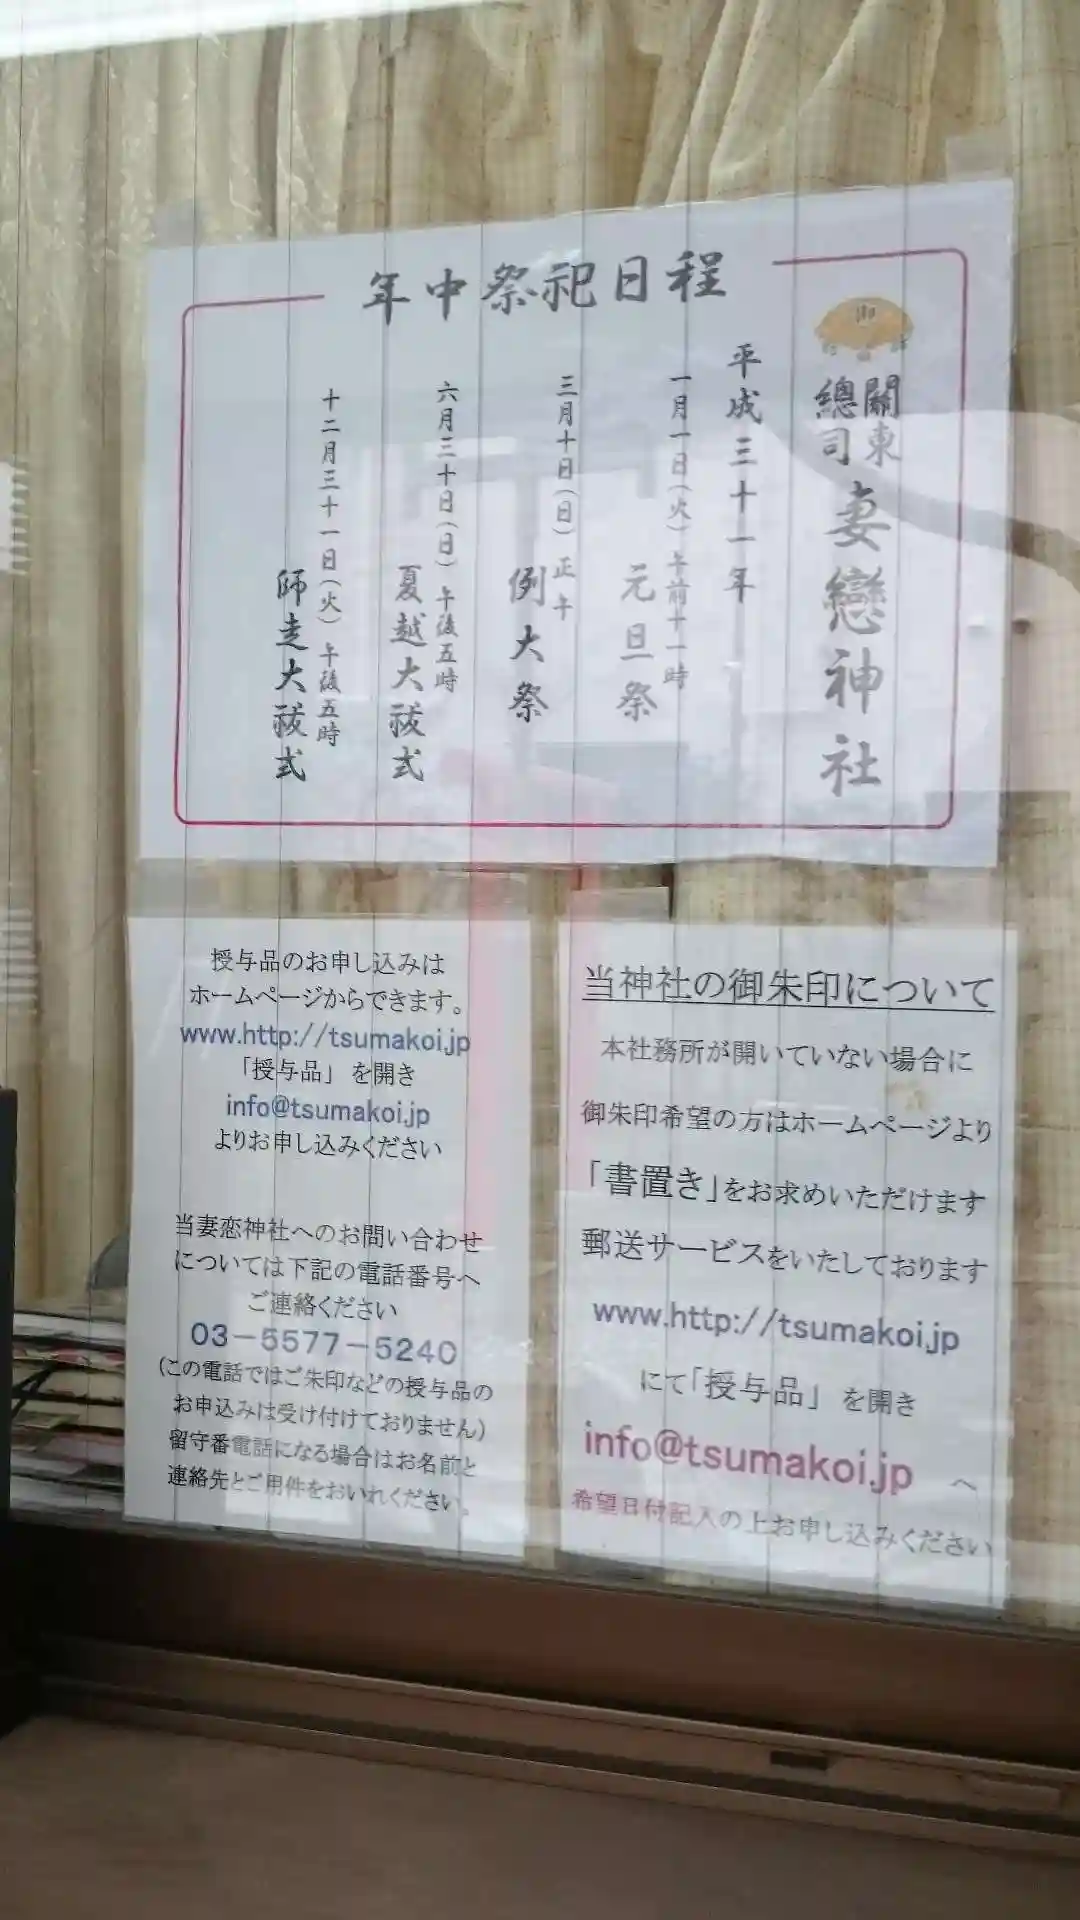 年中祭祀日程
關東
總司
妻戀神社
平成三十一年
一月一日(火)午前十一時
元旦祭
三月十日(日)正午
例大祭
六月三十日(日)午後五時
夏越大祓式
十二月三十一日(火)午後五時
師走大祓式
授与品のお申し込みは
ホームページからできます。
www.http://tsumakoi.jp
「授与品」を開き
info@tsumakoi.jp
よりお申し込みください
当妻恋神社へのお問い合わせ
については下記の電話番号へ
ご連絡ください
03－5577－5240
(この電話ではご朱印などの授与品の
お申込みは受け付けておりません)
留守番電話になる場合はお名前と
連絡先とご用件をおいれください。
当神社の御朱印について
本社務所が開いていない場合に
御朱印希望の方はホームページより
「書置き」をお求めいただけます
郵送サービスをいたしております
www.http://tsumakoi.jp
にて「授与品」を開き
info@tsumakoi.jp へ
希望日付記入の上お申し込みください